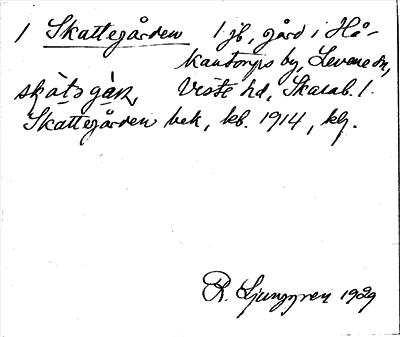 1 Skattegården 1 jb, gård i Hå-
kantorps by, Levene sn,
skàtəgàɳ, Viste hd, Skarab. l.
Skattegården bek, kb. 1914, klj.
R. Ljunggren 1929